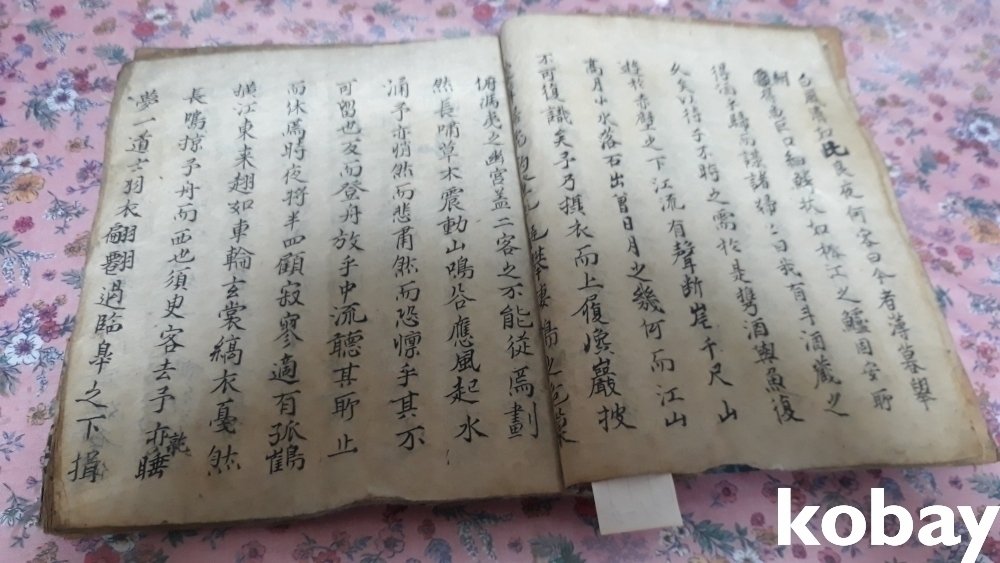 夜何客曰今者薄暮擧
網得魚巨口細鱗狀如松江之鱸固安所
得酒乎歸而謀諸婦〻曰我有斗酒藏之
久矣以待子不時之需於是携酒與魚復
遊於赤壁之下江流有聲斷岸千尺山
高月小水落石出曾日月之幾何而江山
不可復識矣予乃攝衣而上履巉巖披
棲鶻之危巢
俯馮夷之幽宮盖二客之不能從焉劃
然長嘯草木震動山鳴谷應風起水
涌予亦悄然而悲肅然而恐懍乎其不
可留也反而登舟放乎中流聽其所止
而休焉時夜將半四顧寂寥適有孤鶴
橫江東來翅如車輪玄裳縞衣戞然
長鳴掠予舟而西也須臾客去予亦就睡
夢一道士羽衣翩翩過臨皐之下揖
kobay